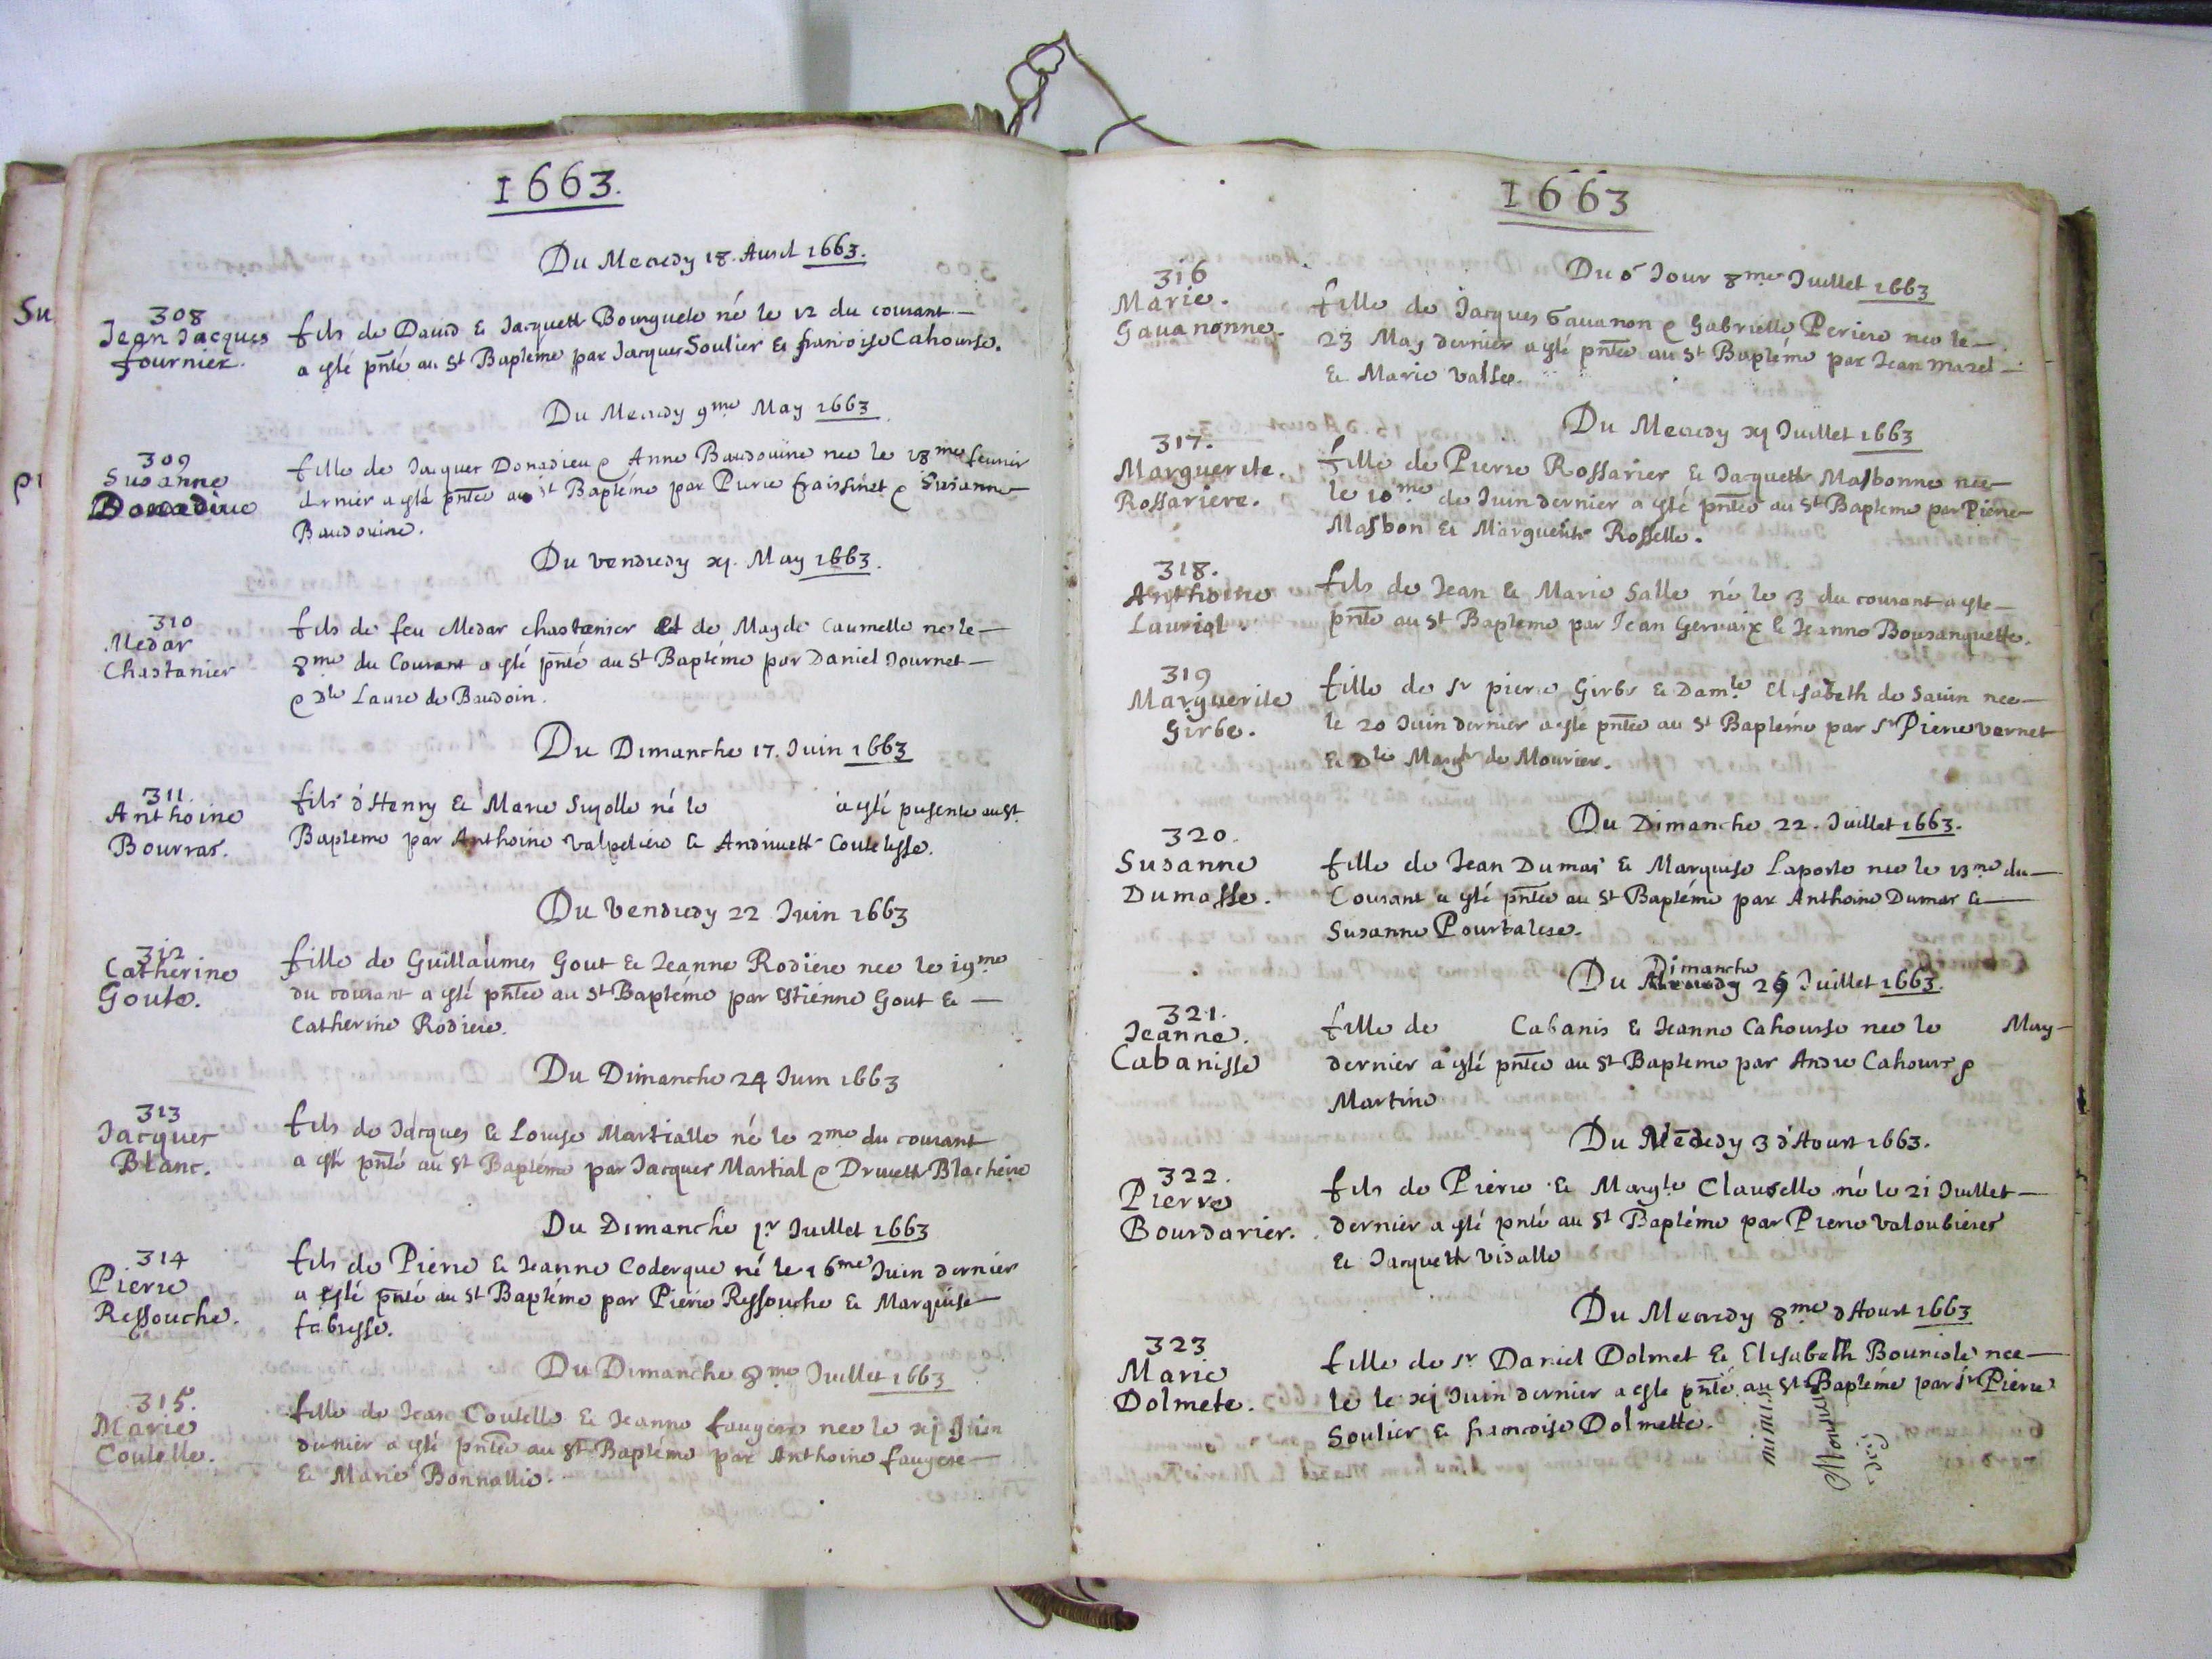 1663.
Du Mecredy 18. Avril 1663.
308
Jean Jacques
fournier.
fils de David & Jacquette Bourguete né le 12 du courant
a esté pnté au St Baptéme par Jacques Soulier & francoise Cahourse.
Du Mecredy 9me May 1663
309
Susanne
Donadiue
fille de Jacques Donadieu & Anne Baudouine nee le 18me feurier
dernier a esté pntée au St Baptéme par Pierre fraissinet & Susanne
Baudouine.
Du vendredy xj. May 1663.
310
Medar
Chastanier
fils de feu Medar chastanier et de Magde Caumelle né le
8me du Courant a esté pnté au St Baptéme par Daniel Journet
& Dle Laure de Baudoin.
Du Dimanche 17. Juin 1663
311
Anthoine
Bourras.
fils d'Henry & Marie Sujolle né le a esté presente au St
Bapteme par Anthoine valpeliere & Andrivette Coutelisse.
Du Vendredy 22 Juin 1663
312
Catherine
Goute.
fille de Guillaumes Gout & Jeanne Rodiere nee le 19me
du courant a esté pntée au St Baptéme par Estienne Gout &
Catherine Rodiere.
Du Dimanche 24 Juin 1663
313
Jacques
Blanc.
fils de Jacques & Louise Martialle né le 2me du courant
a esté pnté au St Baptéme par Jacques Martial & Druette Blacheire
Du Dimanche 1r Juillet 1663
314
Pierre
Ressouche.
fils de Pierre & Jeanne Coderque né le 16me Juin dernier
a esté pnté au St Baptéme par Pierre Ressouche & Marquise
fabresse.
Du Dimanche 8me Juillet 1663
315.
Marie
Coutelle.
fille de Jean Coutelle & Jeanne faugere nee le xj Juin
dernier a esté pntée au St Baptéme par Anthoine faugere
& Marie Bonnallie.
1663
Du d Jour 8me Juillet 1663
316
Marie.
Gavanonne.
fille de Jacques Gavanon & Gabrielle Periere nee le
23 May dernier a esté pntée au St Baptéme par Jean mazel
& Marie valsee.
Du Mecredy xj Juillet 1663
317.
Marguerite.
Rossariere.
fille de Pierre Rossarier & Jacquette Masbonne nee
le 10me de Juin dernier a esté pntée au St Bapteme par Pierre
Masbon & Marguerite Rosselle.
318.
Anthoine
Lauriol.
fils de Jean & Marie Salle né le 3 du courant a esté
pnté au St Bapteme par Jean Gervaix & Jeanne Bousanquette.
319
Marguerite
Girbe.
fille de Sr pierre Girbe & Damle Elisabeth de Savin nee
le 20 Juin dernier a esté pntée au St Baptéme par Sr Pierre vernet
& Dle Margte de Mourier.
Du Dimanche 22. Juillet 1663.
320.
Susanne
Dumasse.
fille de Jean Dumas & Marquise Laporte nee le 13me du
Courant a esté pntée au St Baptéme par Anthoine Dumas &
Susanne Pourtalese.
Dimanche
Du Mecredy 29 Juillet 1663.
321.
Jeanne.
Cabanisse
fille de Cabanis & Jeanne Cahourse nee le May
dernier a esté pntée au St Bapteme par Andre Cahours &
Martine
Du Mecredy 3 d'Aoust 1663.
322.
Pierre
Bourdarier.
fils de Pierre & Margte Clauselle né le 21 Juillet
dernier a esté pnté au St Baptéme par Pierre valoubieres
& Jacquette vidalle
Du Mecredy 8me d'Aoust 1663
323
Marie
Dolmete.
fille de Sr Daniel Dolmet & Elisabeth Bouniole nee
le le xj Juin dernier a esté pntée au St Baptéme par Sr Pierre
Soulier & francoise Dolmette.